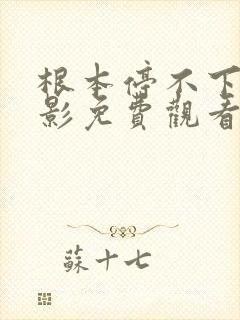 根本停不下
影免費觀看
蘇十七